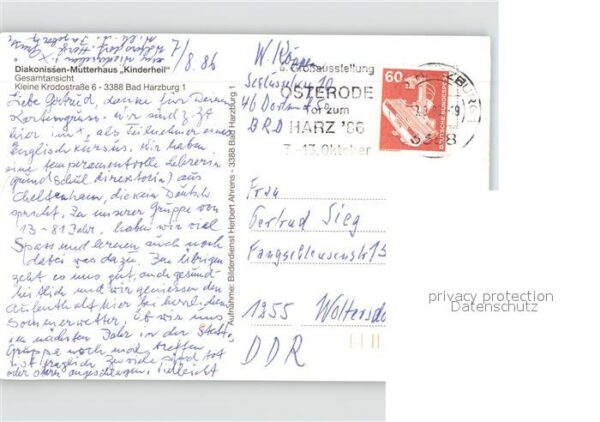 7/8.86
Diakonissen-Mutterhaus „Kinderheil"
Gesamtansicht
Kleine Krodostraße 6 - 3388 Bad Harzburg 1
Liebe Gertrud, danke für Deinen
Kartengruss. Wir sind z.Zt
hier im x, als Teilnehmer eines
Englischkursus. Wir haben
eine temperamentvolle Lehrerin
(Grundschuldirektorin) aus
Cheltenham, die kein Deutsch
spricht. In unserer Gruppe von
13-81 Jahr. haben wir viel
Spass und lernen auch noch
dabei was dazu. Im übrigen
geht es uns gut, auch gesund-
heitlich und wir geniessen den
Aufenthalt hier bei herrl.
Sommerwetter. Ob wir uns
im nächsten Jahr in der
Gruppe noch mal treffen
ist fraglich. Zu viele sind tot
oder angeschlagen. Vielleicht
Aufnahme: Bilderdienst Herbert Ahrens - 3388 Bad Harzburg 1
W. Köppe
46 Dortmund
BRD
Großausstellung
OSTERODE
Tor zum
HARZ '86
3.-13. Oktober
60
DEUTSCHE BUNDESPOST
3388
Frau
Gertrud Sieg
1255 Woltersd
DDR
privacy protection
Datenschutz